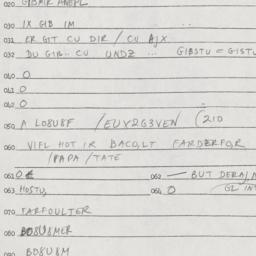 020 GIBMIR ANEPL
030 IX GIB IM
031 ER GIT CU DIR / CU AJX
032 DU GIR.. CU UNDZ ... GIBSTU = GISTU
040 0
041 0
042 0
050 A LO8U8F /EUY2G3VEN (210
060 VIFL HOT IR BACO,LT FARDERFOR
/PAPA /TATE
061 0
062 — BUT DERAJN
063 HOSTU,
064 0 GL IN
070 FARFOULTER
080 BO8U8MER
090 BO8U8M